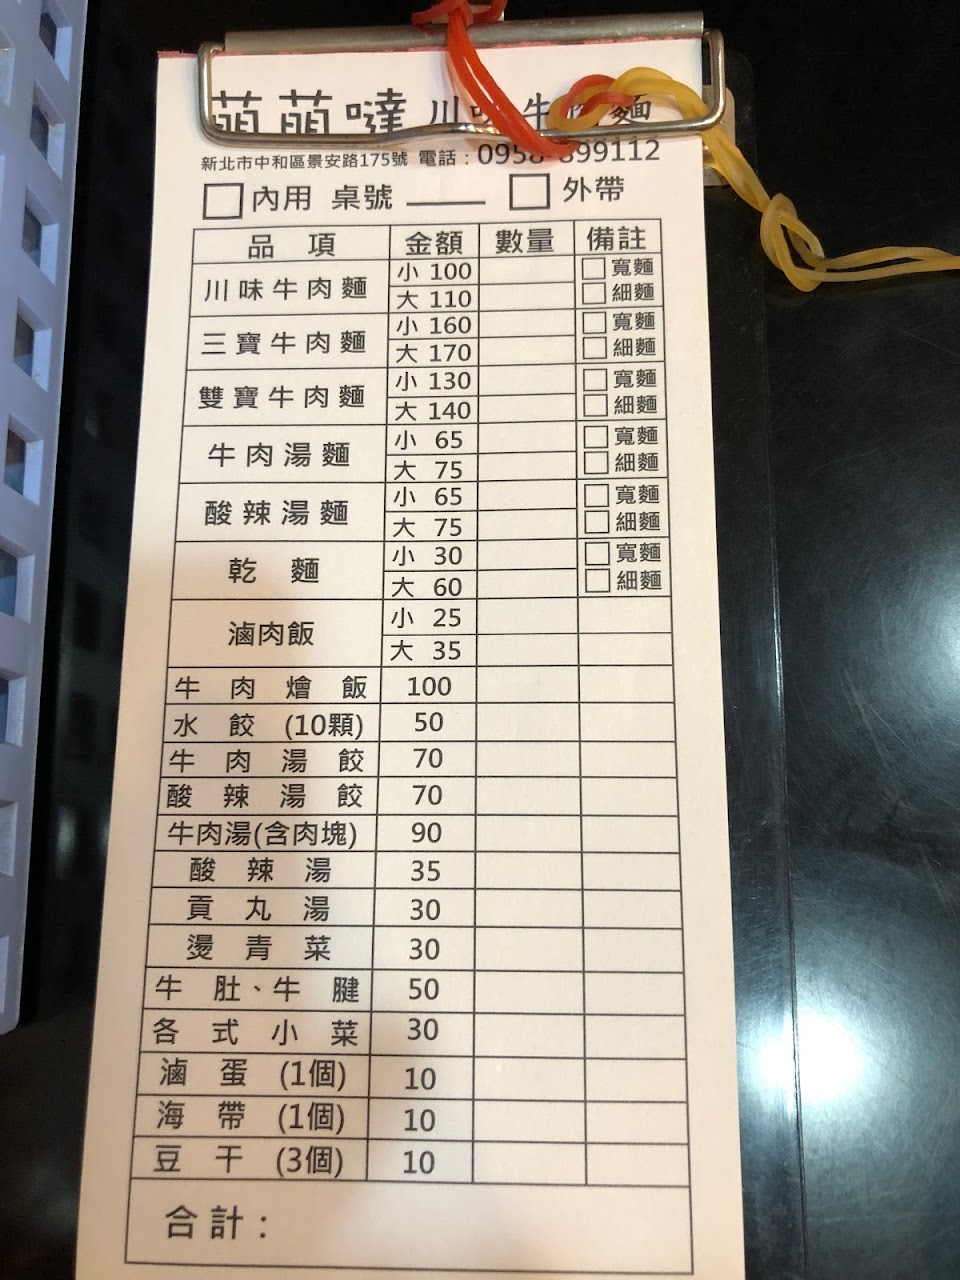 萌萌噠 川味牛肉麵
新北市中和區景安路175號 電話：0958-899112
□內用 桌號____ □外帶
品項 金額 數量 備註
川味牛肉麵 小 100 □寬麵
大 110 □細麵
三寶牛肉麵 小 160 □寬麵
大 170 □細麵
雙寶牛肉麵 小 130 □寬麵
大 140 □細麵
牛肉湯麵 小 65 □寬麵
大 75 □細麵
酸辣湯麵 小 65 □寬麵
大 75 □細麵
乾麵 小 30 □寬麵
大 60 □細麵
滷肉飯 小 25
大 35
牛肉燴飯 100
水餃 (10顆) 50
牛肉湯餃 70
酸辣湯餃 70
牛肉湯(含肉塊) 90
酸辣湯 35
貢丸湯 30
燙青菜 30
牛肚、牛腱 50
各式小菜 30
滷蛋 (1個) 10
海帶 (1個) 10
豆干 (3個) 10
合計：